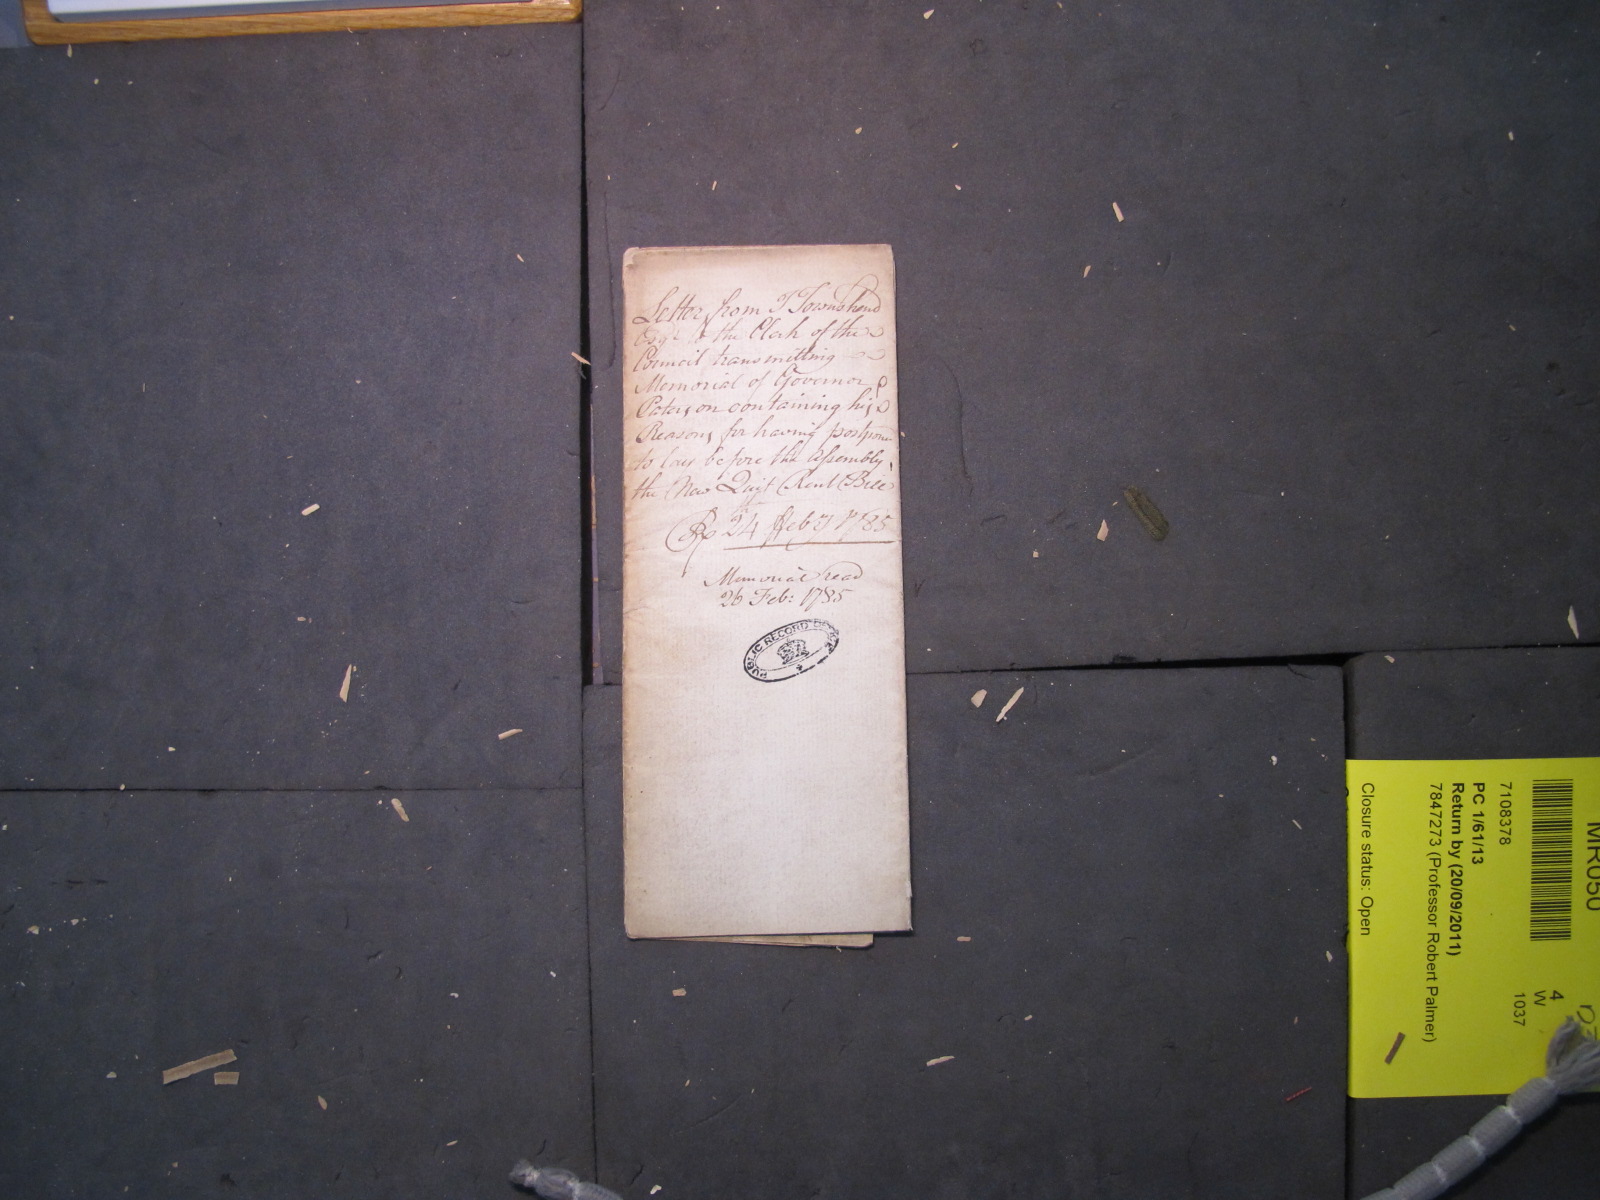 Letter from T Townshend
Esqr to the Clerk of the
Council transmitting
Memorial of Governor
Paterson containing his
Reasons for having postpon
to lay before the Assembly
the New Quit Rent Bill
Rx 24 Feby 1785
Memorial read
26 Feb: 1785
PUBLIC RECORD OFFICE
MR050
4
W
1037
7108378
PC 1/61/13
Return by (20/09/2011)
7847273 (Professor Robert Palmer)
Closure status: Open